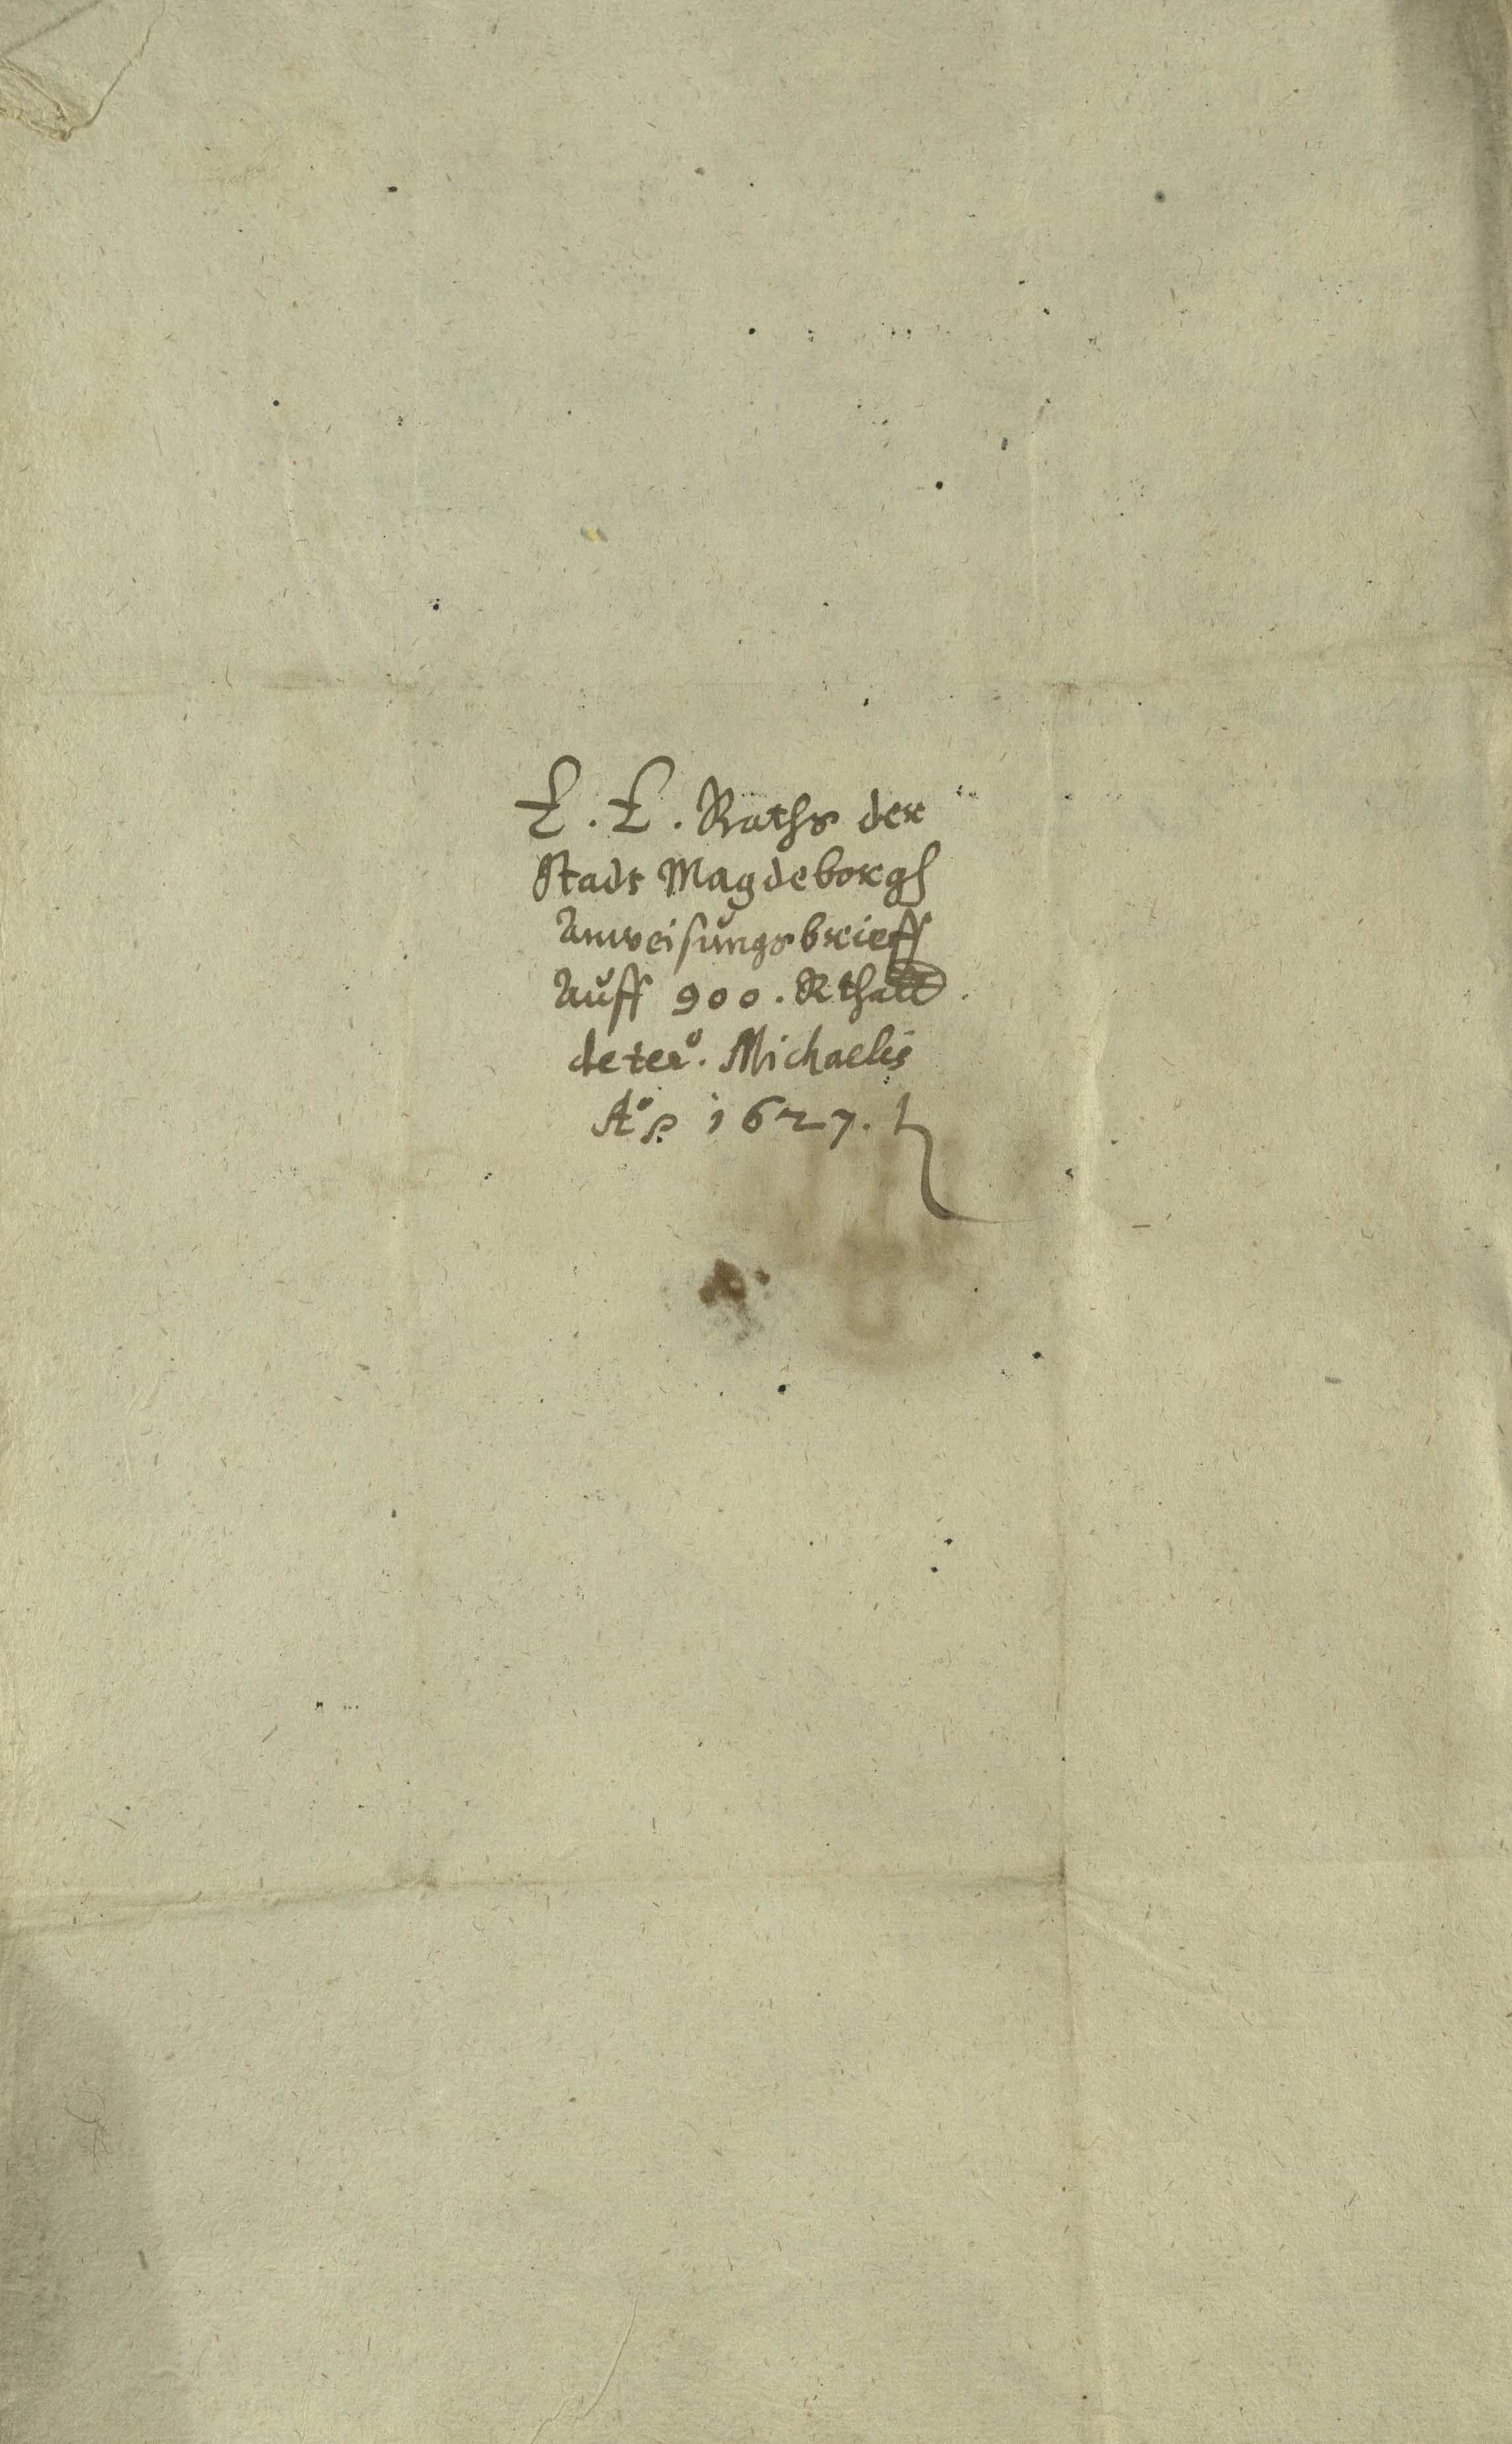 E. E. Raths der
Stadt Magdeborgh
Anweisungsbrieff
Auff 900. Rthall.
de ter°. Michaelis
A°. 1627.